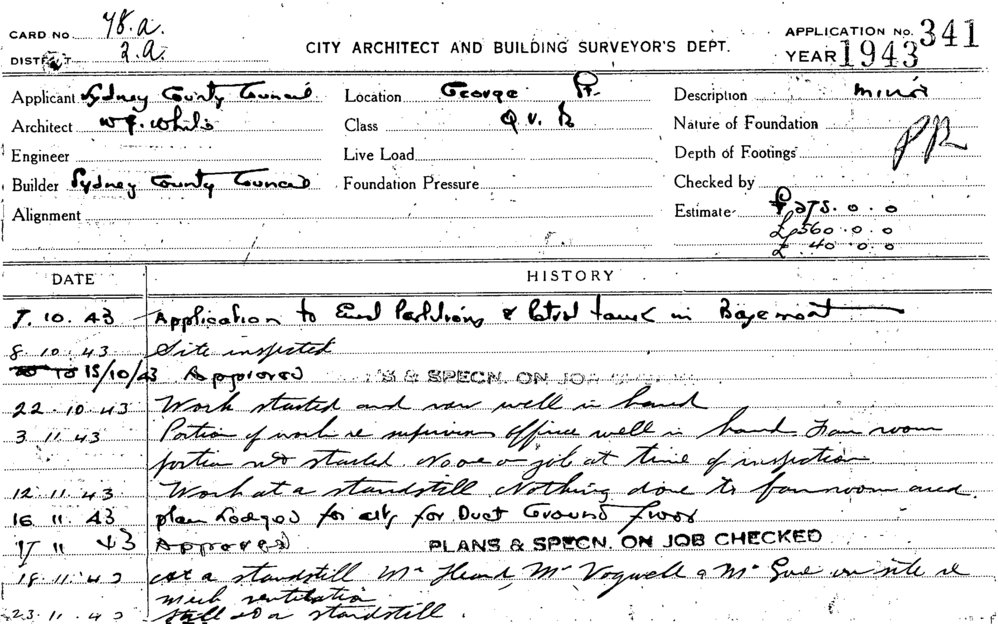 CARD NO. 78.a.
DISTRICT 2.a.
CITY ARCHITECT AND BUILDING SURVEYOR'S DEPT.
APPLICATION No. 341
YEAR 1943
Applicant Sydney County Council
Location George St.
Description minor
Architect
Class Q.V.B
Nature of Foundation
Engineer
Live Load
Depth of Footings
Builder Sydney County Council
Foundation Pressure
Checked by
Alignment
Estimate £275.0.0
£560.0.0
£40.0.0
DATE HISTORY
7.10.43 Application to Partitions & tank in Basement
8 10 43 Site inspected
15/10/43 Approved & SPECN. ON JOB
22.10.43 Work started and now well in hand
3.11.43 Portion of work re office well in hand. Fan room
portion not started. No one on job at time of inspection
12.11.43 Work at a standstill Nothing done to fan room area.
16 11 43 plan Lodged for for Duct Ground floor
17 11 43 Approved PLANS & SPECN. ON JOB CHECKED
18.11.43 at a standstill Mr Mr Vogwell & Mr on site re
mech ventilation
23.11.43 Still at a standstill.